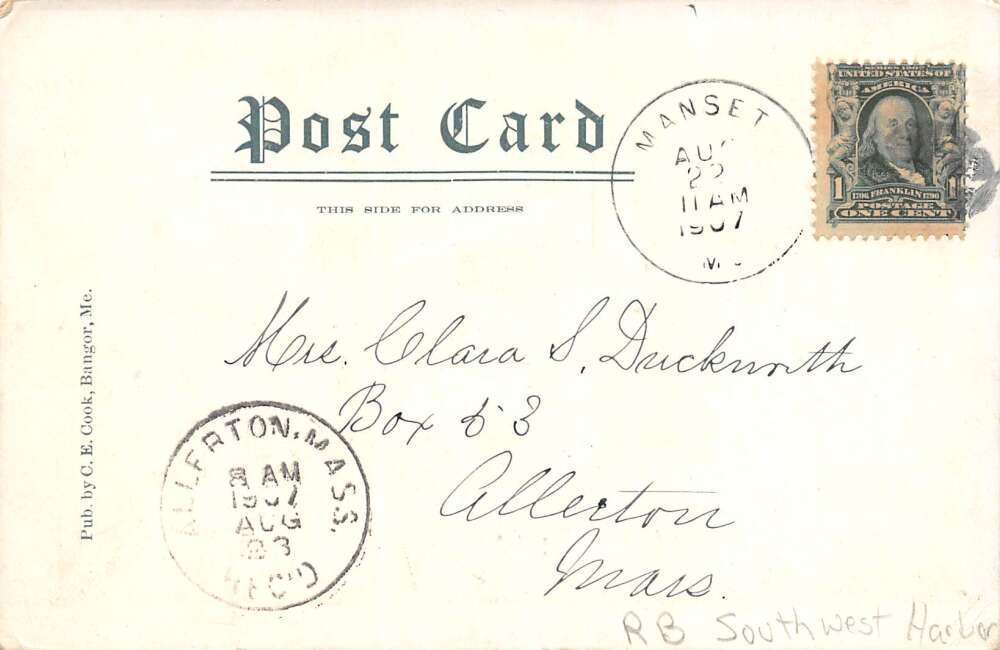 Post Card
THIS SIDE FOR ADDRESS
MANSET
AUG
22
11 AM
1907
ME
SERIES 1902
UNITED STATES OF
AMERICA
1 1
1706 FRANKLIN 1790
POSTAGE
ONE CENT
Pub. by C. E. Cook, Bangor, Me.
Mrs. Clara S. Duckworth
Box 53
Allerton
Mass.
ALLERTON, MASS.
8 AM
1907
AUG
23
REC'D
RB Southwest Harbor